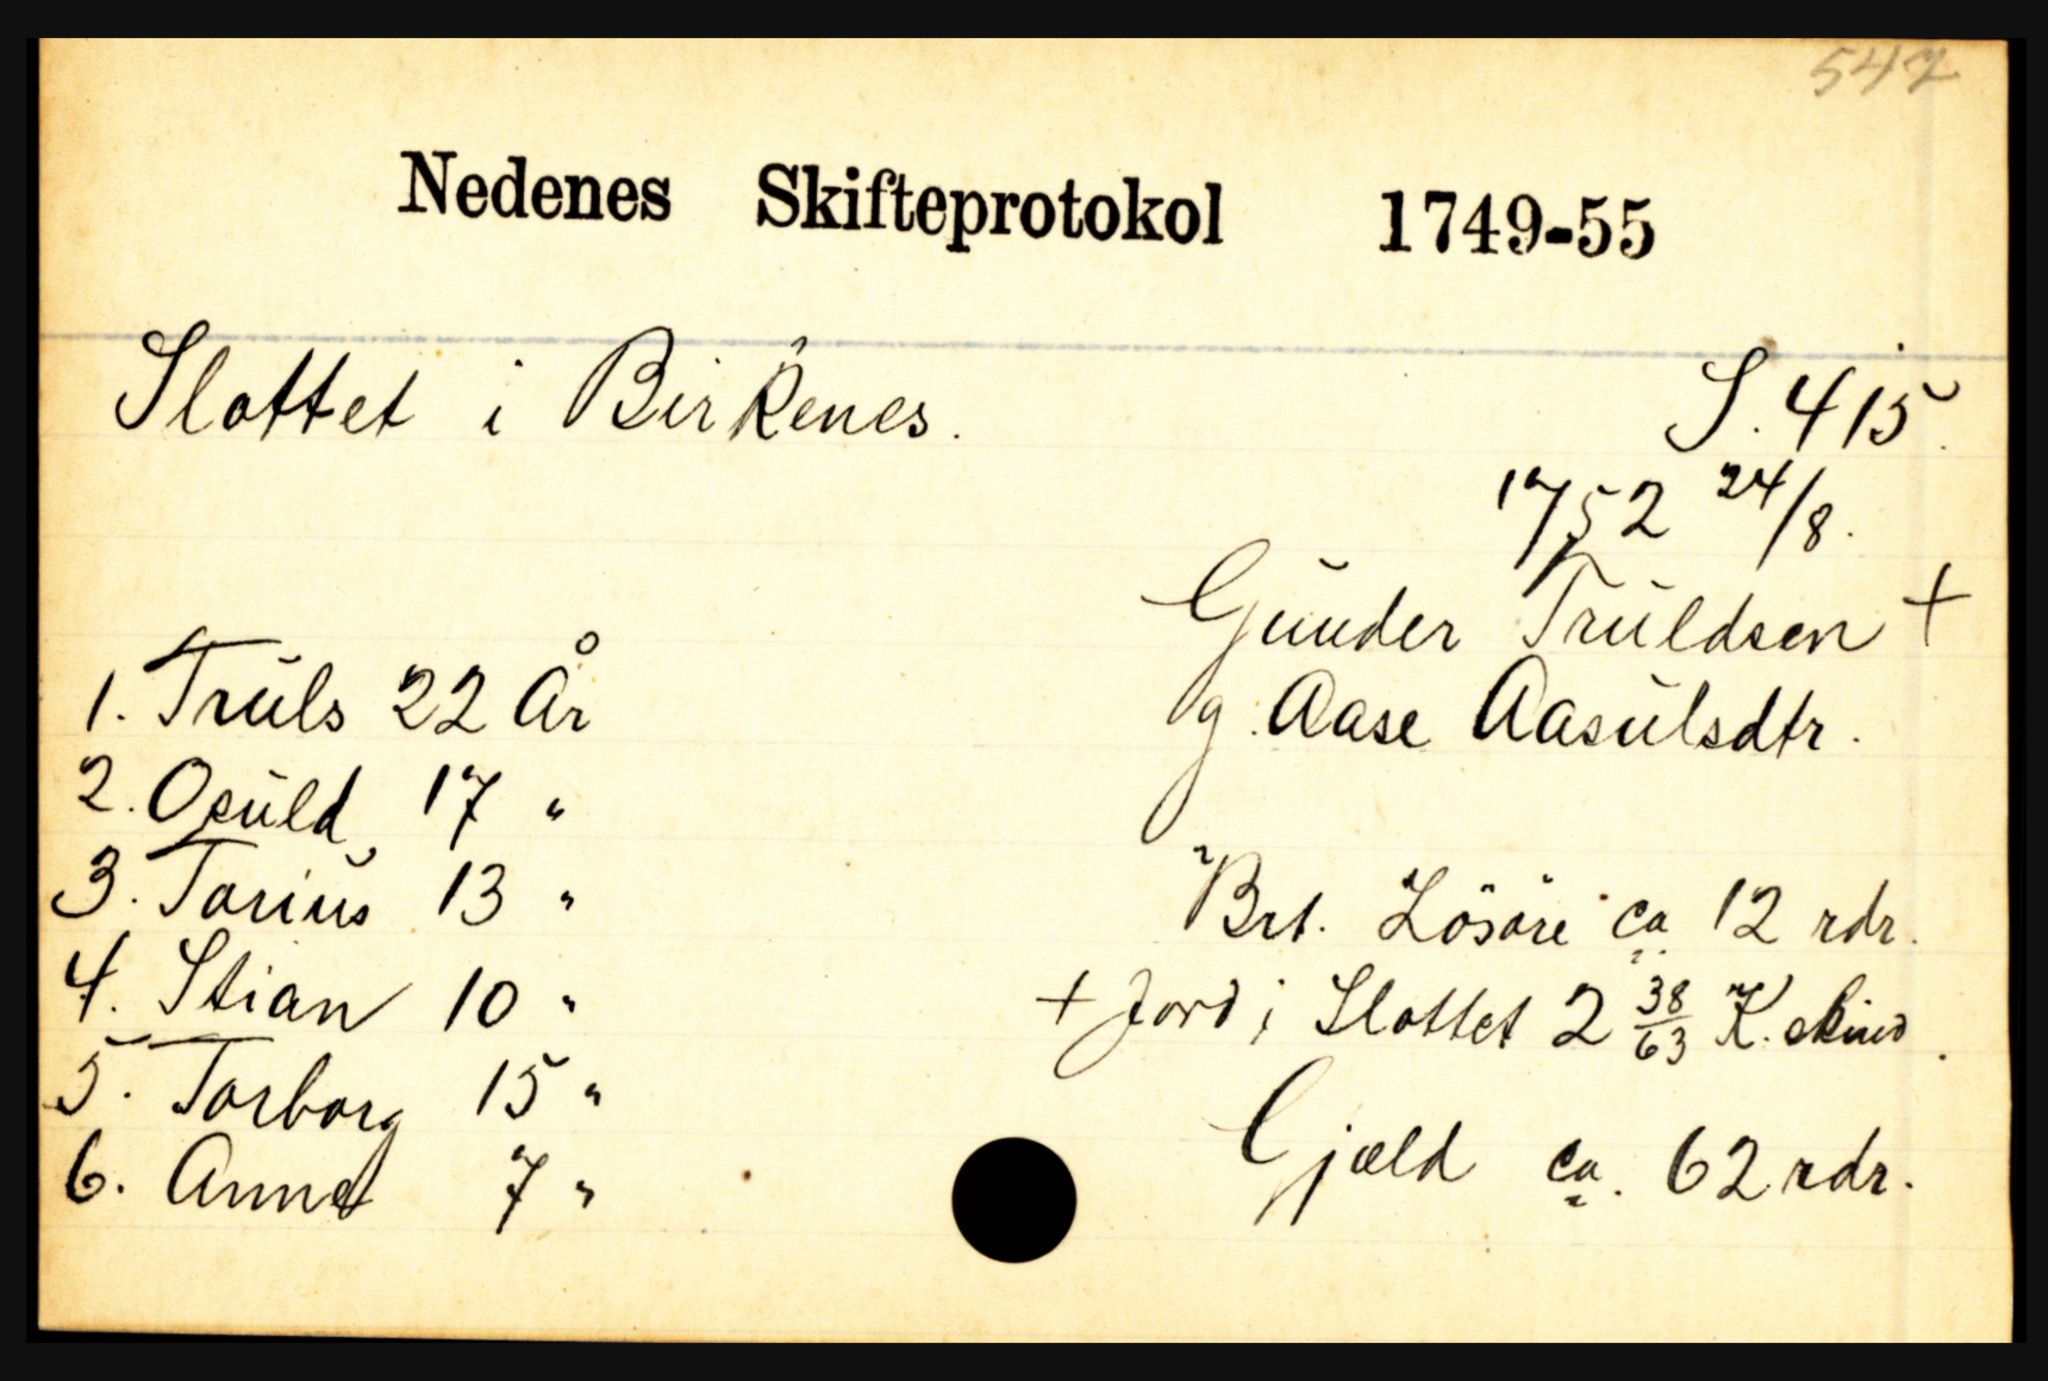 547
Nedenes Skifteprotokol 1749-55
Slottet i Birkenes.
S. 415.
1752 24/8.
Gunder Truldsen +
g. Aase Aasulsdtr.
1. Truls 22 År
2. Osuld 17 "
3. Tarius 13 "
4. Stian 10 "
5. Torborg 15 "
6. Anne 7 "
Brt. Lösöre ca 12 rdr.
+ Jord i Slottet 2 38/63 K. skind.
Gjæld ca. 62 rdr.